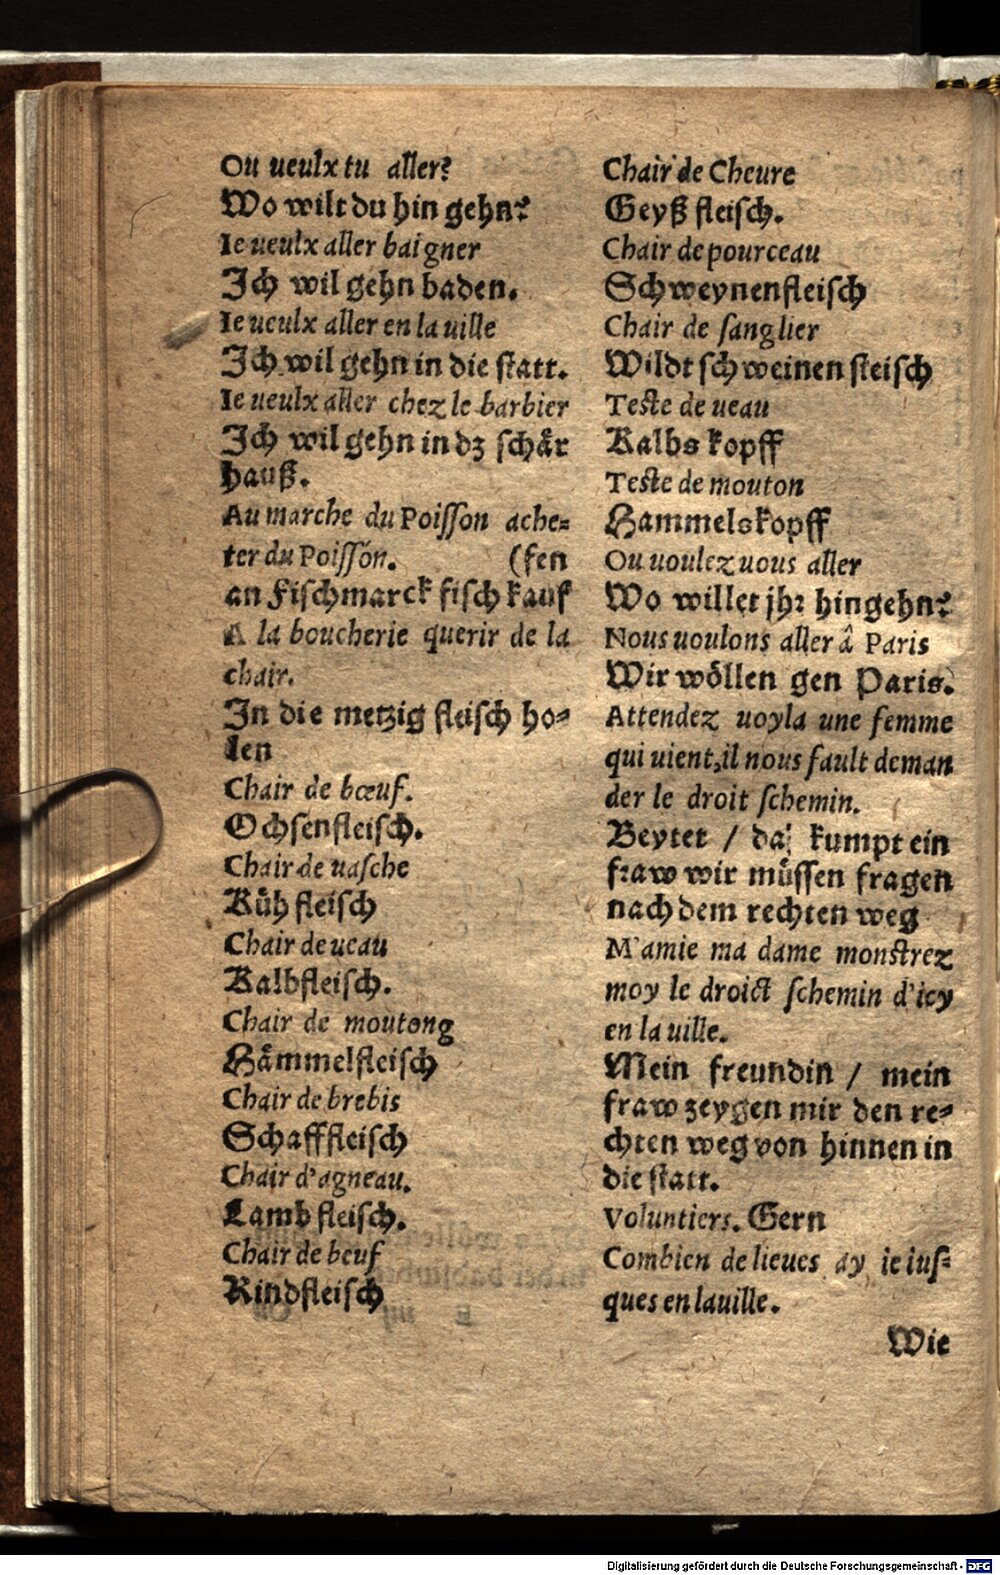 Ou ueulx tu aller?
Wo wilt du hin gehn?
Ie ueulx aller baigner
Ich wil gehn baden.
Ie ueulx aller en la uille
Ich wil gehn in die statt.
Ie ueulx aller chez le barbier
Ich wil gehn in dz schår
hauß.
Au marche du Poisson ache=
ter du Poissón. (fen
an Fischmarck fisch kauf
A la boucherie querir de la
chair.
In die metzig fleisch ho=
len
Chair de bœuf.
Ochsenfleisch.
Chair de uasche
Küh fleisch
Chair de ueau
Kalbfleisch.
Chair de moutong
Håmmelfleisch
Chair de brebis
Schafffleisch
Chair d'agneau.
Lamb fleisch.
Chair de beuf
Rindfleisch
Chair de Cheure
Geyß fleisch.
Chair de pourceau
Schweynenfleisch
Chair de sanglier
Wildt schweinen fleisch
Teste de ueau
Kalbs kopff
Teste de mouton
Hammelskopff
Ou uoulez uous aller
Wo willet jhr hingehn?
Nous uoulons aller â Paris
Wir wôllen gen Paris.
Attendez uoyla une femme
qui uient, il nous fault deman
der le droit schemin.
Beytet / da kumpt ein
fraw wir müssen fragen
nach dem rechten weg
M'amie ma dame monstrez
moy le droict schemin d'icy
en la uille.
Mein freundin / mein
fraw zeygen mir den re=
chten weg von hinnen in
die statt.
Voluntiers. Gern
Combien de lieues ay ie ius=
ques en lauille.
Wie
Digitalisierung gefördert durch die Deutsche Forschungsgemeinschaft - DFG